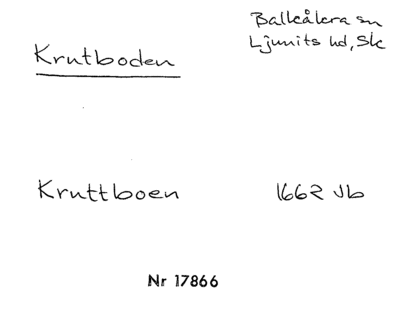 Balkåkra sn
Ljunits hd, Sk
Krutboden
Kruttboen 1662 Jb
Nr 17866